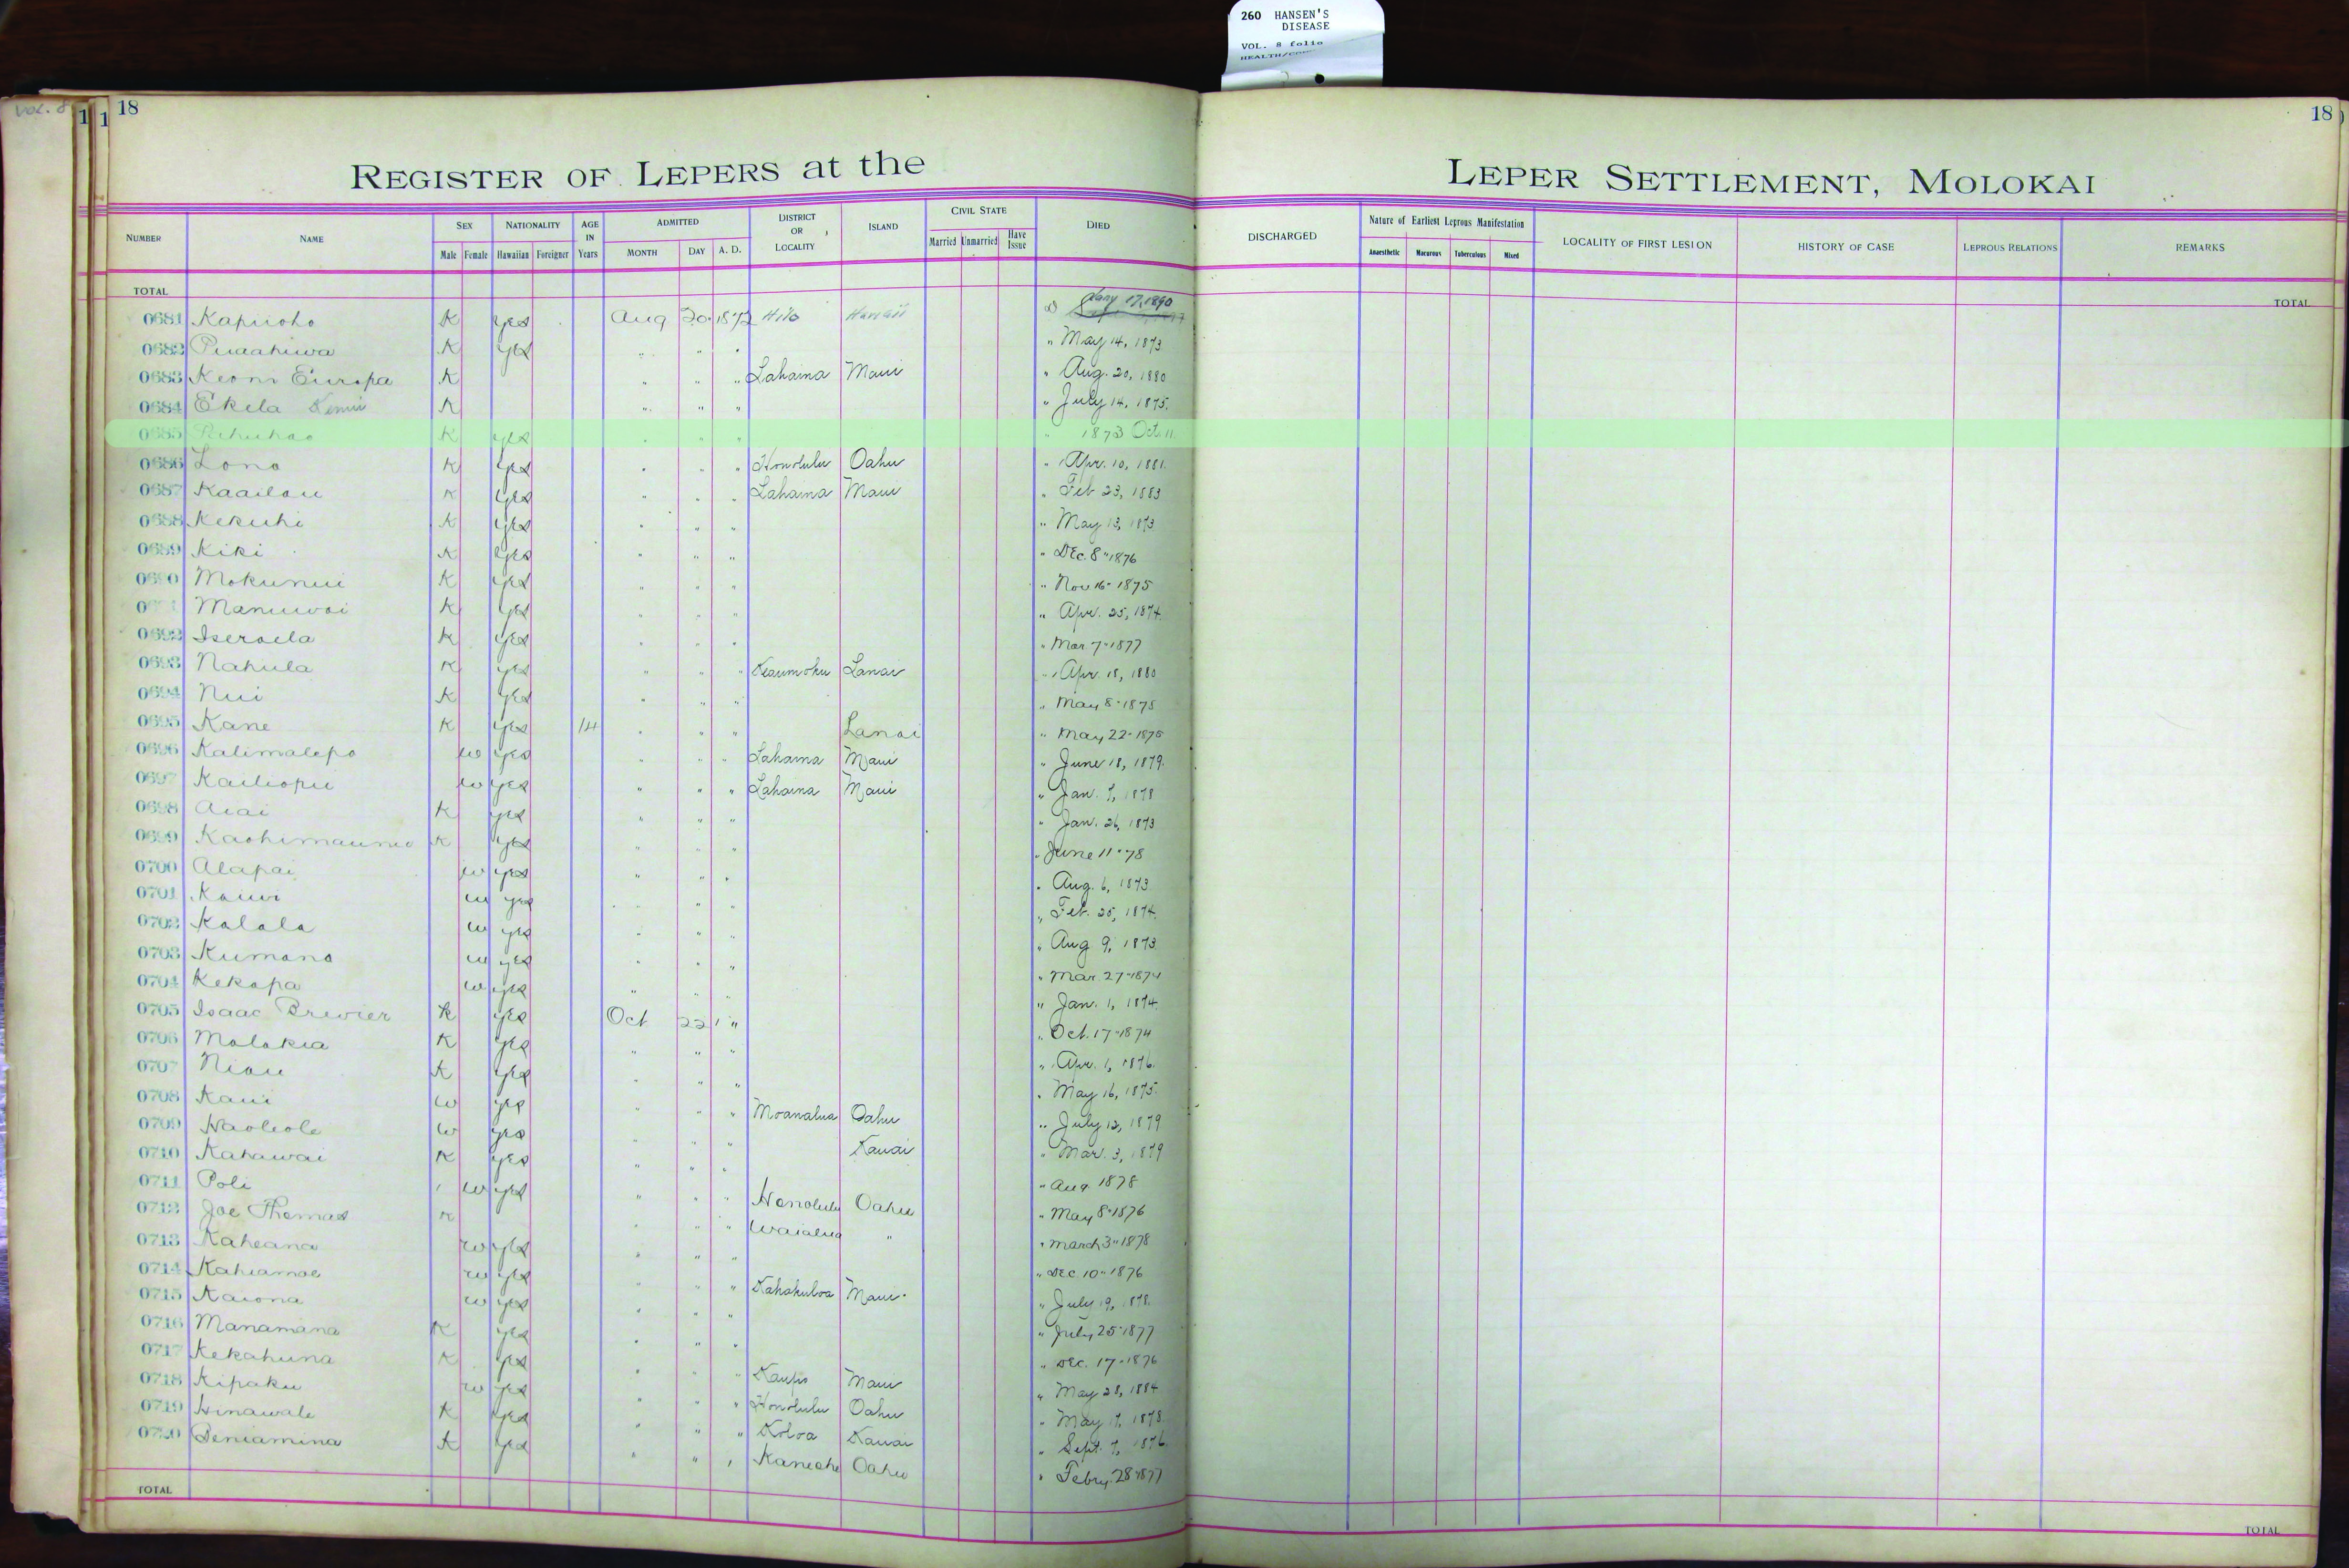 260 HANSEN'S
DISEASE
VOL. 8 folio
Vol. 8
1 1 18
18
REGISTER OF LEPERS at the LEPER SETTLEMENT, MOLOKAI
NUMBER NAME SEX Male Female NATIONALITY Hawaiian Foreigner AGE IN Years ADMITTED MONTH DAY A. D. DISTRICT OR LOCALITY ISLAND CIVIL STATE Married Unmarried Have Issue DIED DISCHARGED Nature of Earliest Leprous Manifestation Anaesthetic Macurous Tuberculous Mixed LOCALITY OF FIRST LESION HISTORY OF CASE LEPROUS RELATIONS REMARKS
TOTAL TOTAL
0681 Kapuoho K yes Aug 20 1872 Hilo Hawaii Jany 17, 1890
0682 Puaahiwa K yes " " " " May 14, 1873
0683 Keoni Europa K " " " Lahaina Maui " Aug. 20, 1880
0684 Ekela K " " " " July 14, 1875.
0685 Pahuhao K yes " " " " 1873 Oct. 11
0686 Lono K yes " " " Honolulu Oahu " Apr. 10, 1881.
0687 Kaailau K yes " " " Lahaina Maui " Feb 23, 1883
0688 Kekuhi K yes " " " " May 13, 1873
0689 Kiki K yes " " " " Dec. 8" 1876
0690 Mokunui K yes " " " " Nov 16" 1875
Manuwai K yes " " " " Apr. 25, 1874.
0692 Iseraela K yes " " " " Mar 7" 1877
0693 Nahula K yes " " " Keaumoku Lanai " Apr. 18, 1880
0694 Nui K yes " " " " May 8" 1875
0695 Kane K yes 14 " " " Lanai " May 22" 1875
0696 Kalimalepo w yes " " " Lahaina Maui " June 18, 1879.
0697 Kailiopu w yes " " " Lahaina Maui " Jan. 7, 1878
0698 Aiai K yes " " " " Jan. 26, 1873
0699 Kaohimaunu K yes " " " " June 11" 78
0700 Alapai w yes " " " " Aug. 6, 1873
0701 Kauwi w yes " " " " Feb. 25, 1874.
0702 Kalala w yes " " " " Aug 9, 1873.
0703 Kumano w yes " " " " Mar 27" 1874
0704 Kekapa w yes " " " " Jan. 1, 1874.
0705 Isaac Brewier K yes Oct 22 " " Oct. 17" 1874
0706 Molokia K yes " " " " Apr. 1, 1876.
0707 Niau K yes " " " " May 16, 1875.
0708 Kaui w yes " " " Moanalua Oahu " July 12, 1879
0709 Haoleole w yes " " " Kauai " Mar. 3, 1879
0710 Kahawai K yes " " " " Aug 1878
0711 Poli w yes " " " Honolulu Oahu " May 8" 1876
0712 Joe Thomas K " " " Waialua " " March 3" 1878
0713 Kaheana w yes " " " " Dec 10" 1876
0714 Kahiamoe w yes " " " Kahakuloa Maui " July 19, 1878.
0715 Kaiona w yes " " " " July 25" 1877
0716 Manamana K yes " " " " Dec. 17" 1876
0717 Kekahuna K yes " " " Kaupo Maui " May 28, 1884
0718 Kipaku w yes " " " Honolulu Oahu " May 17, 1878.
0719 Hinawale K yes " " " Koloa Kauai " Sept. 7, 1876.
0720 Beniamina K yes " " " Kaneohe Oahu " Febry. 28" 1877
TOTAL TOTAL